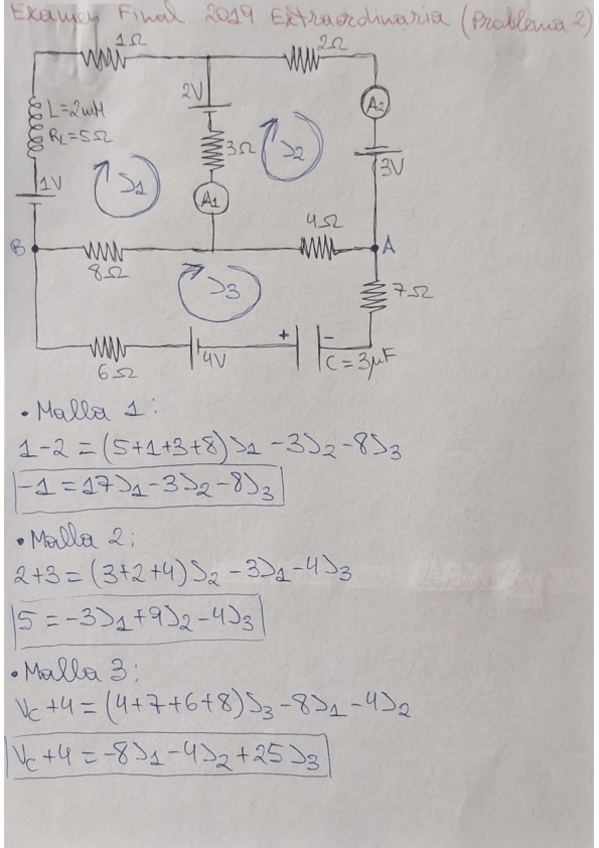 Examen Final 2019 Extraordinaria (Problema 2)
1Ω
2Ω
2V
A2
L=2mH
RL=5Ω
3Ω
J2
3V
1V
J1
A1
4Ω
B
A
8Ω
J3
7Ω
+
-
4V
C=3µF
6Ω
• Malla 1:
1-2 = (5+1+3+8)J1 -3J2 -8J3
-1 = 17J1 -3J2 -8J3
• Malla 2:
2+3 = (3+2+4)J2 -3J1 -4J3
5 = -3J1 +9J2 -4J3
• Malla 3:
Vc +4 = (4+7+6+8)J3 -8J1 -4J2
Vc +4 = -8J1 -4J2 +25J3